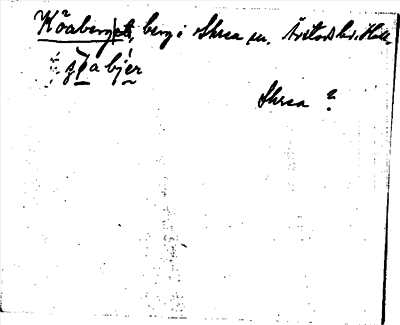 Köaberget, berg i Skrea sn. Årstads hd. Hall.
sṯa bjer
Skrea ?